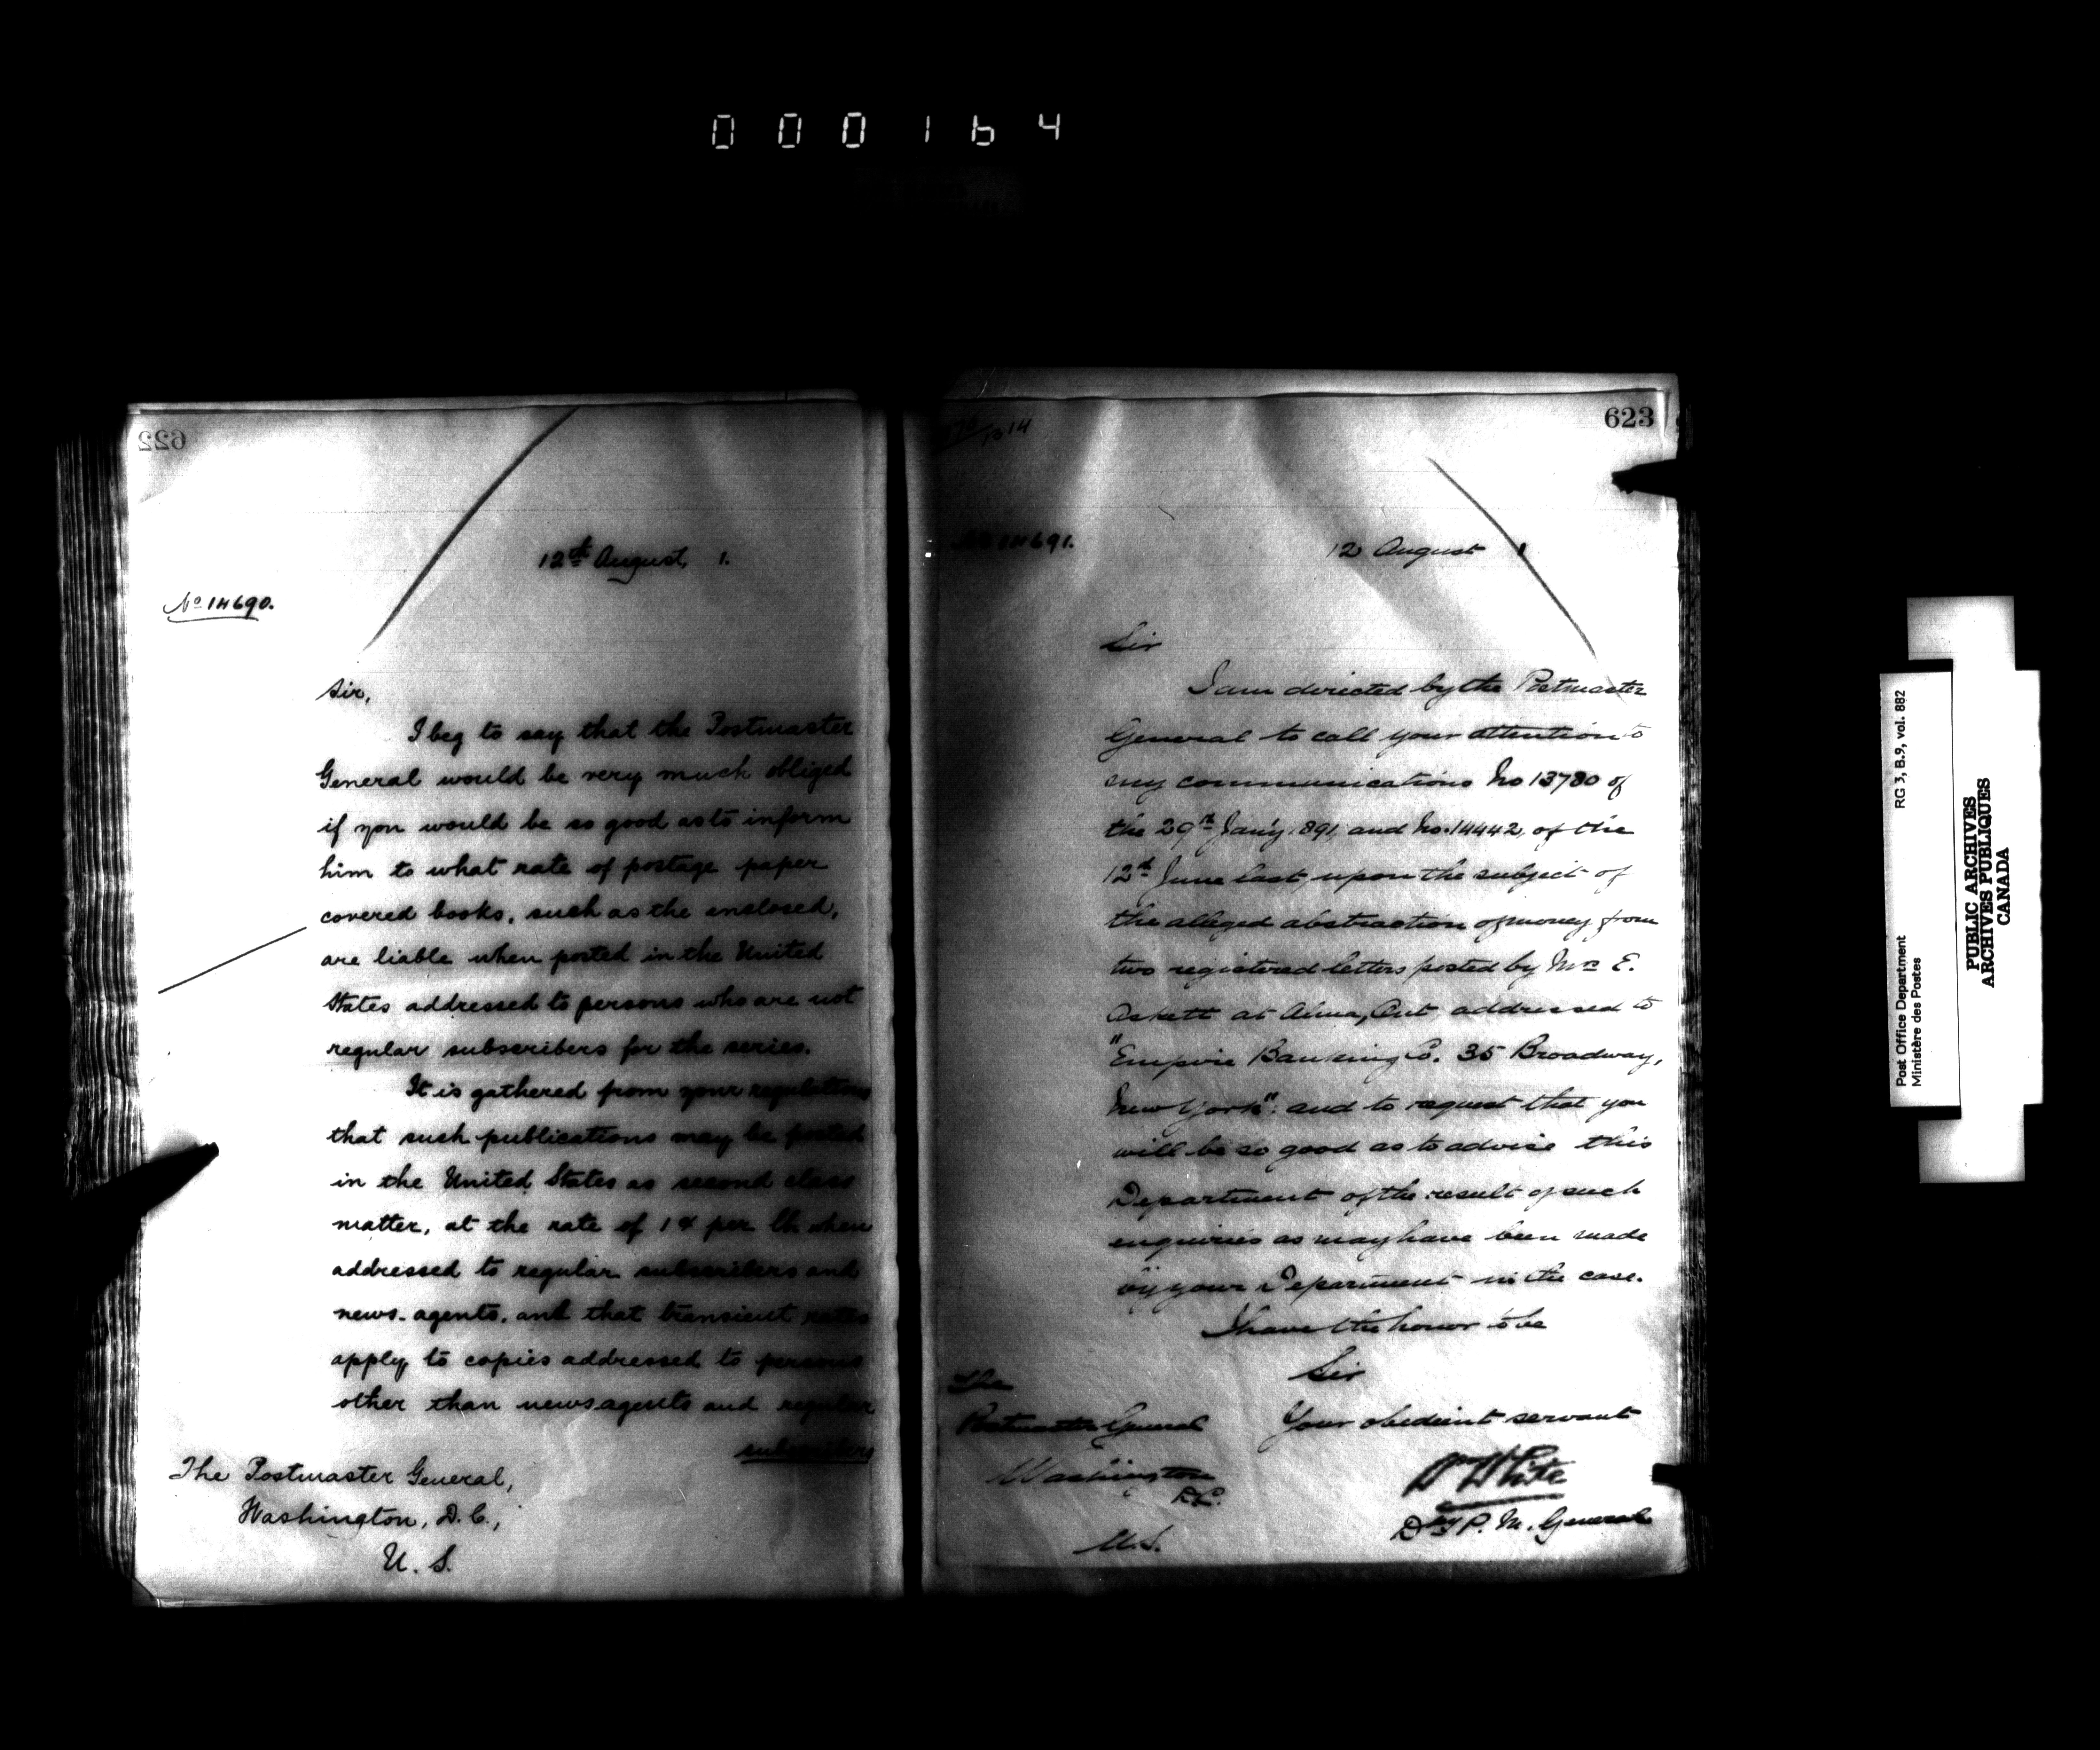 000164
622
12th August, 1.
No 14690.
Sir,
I beg to say that the Postmaster
General would be very much obliged
if you would be so good as to inform
him to what rate of postage paper
covered books, such as the enclosed,
are liable when posted in the United
States addressed to persons who are not
regular subscribers for the series.
It is gathered from your regulations
that such publications may be posted
in the United States as second class
matter, at the rate of 1¢ per lb when
addressed to regular subscribers and
news-agents, and that transient rates
apply to copies addressed to persons
other than newsagents and regular
subscribers
The Postmaster General,
Washington, D.C.,
U. S.
623
14691.
12 August 1
Sir
I am directed by the Postmaster
General to call your attention to
my communications No 13780 of
the 29th Jan'y. 891, and No. 14442, of the
12th June last upon the subject of
the alleged abstraction of money from
two registered letters posted by Mrs E.
Askett at Alma, Ont addressed to
"Empire Banking Co. 35 Broadway,
New York": and to request that you
will be so good as to advise this
Department of the result of such
enquiries as may have been made
by your Department in the case.
I have the honor to be
Sir
Your obedient servant
Wm White
Dpy P. M. General
The
Postmaster General
Washington
D.C.
U.S.
Post Office Department RG 3, B.9, vol. 882
Ministère des Postes
PUBLIC ARCHIVES
ARCHIVES PUBLIQUES
CANADA